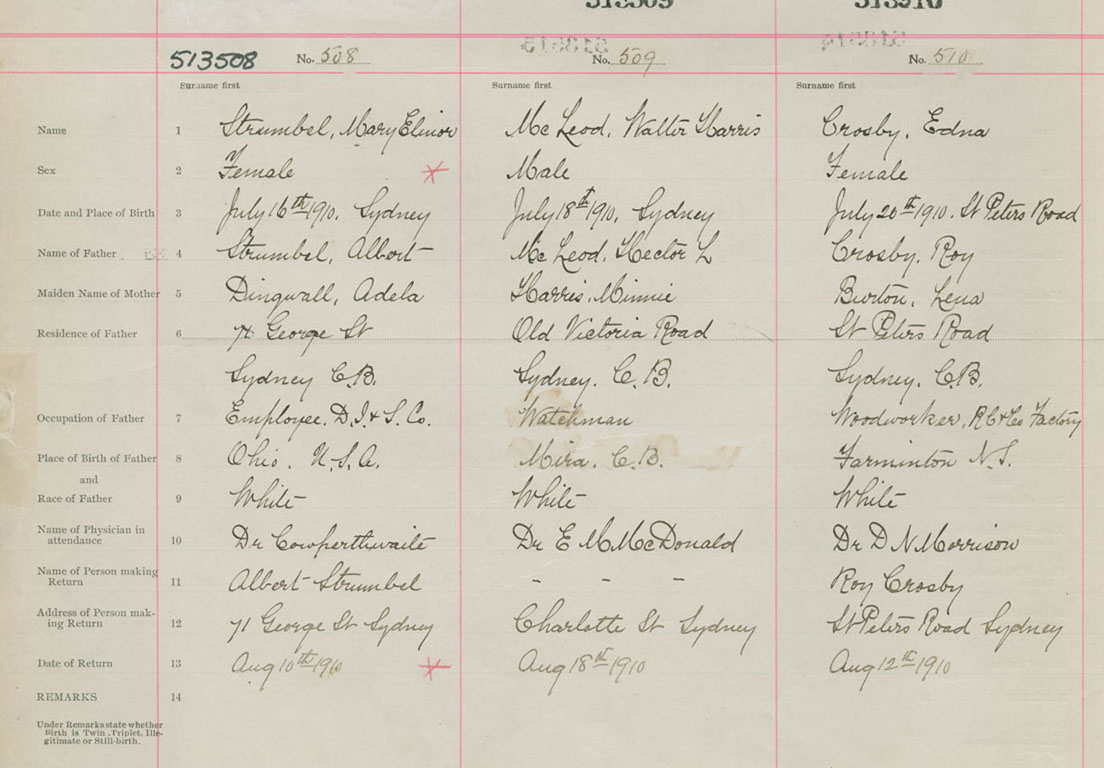 513509 513910
513508 No. 508 No. 509 No. 510
Surname first Surname first Surname first
Name 1 Strumbel, Mary Elinor Mc Leod, Walter Harris Crosby, Edna
Sex 2 Female Male Female
Date and Place of Birth 3 July 16th 1910, Sydney July 18th 1910, Sydney July 20th 1910. St Peters Road
Name of Father 4 Strumbel, Albert Mc Leod, Hector L Crosby, Roy
Maiden Name of Mother 5 Dingwall, Adela Harris, Minnie Burton, Lena
Residence of Father 6 71 George St Old Victoria Road St Peters Road
Sydney C.B. Sydney. C.B. Sydney. C.B.
Occupation of Father 7 Employee. D.I.&S. Co. Watchman Woodworker, R C & Co Factory
Place of Birth of Father 8 Ohio. U.S.A. Mira. C.B. Farminton N.S.
and
Race of Father 9 White White White
Name of Physician in
attendance 10 Dr Cowperthwaite Dr E M McDonald Dr D N Morrison
Name of Person making
Return 11 Albert Strumbel - - - Roy Crosby
Address of Person mak-
ing Return 12 71 George St Sydney Charlotte St Sydney St Peters Road Sydney
Date of Return 13 Aug 10th 1910 Aug 18th 1910 Aug 12th 1910
REMARKS 14
Under Remarks state whether
Birth is Twin, Triplet, Ille-
gitimate or Still-birth.